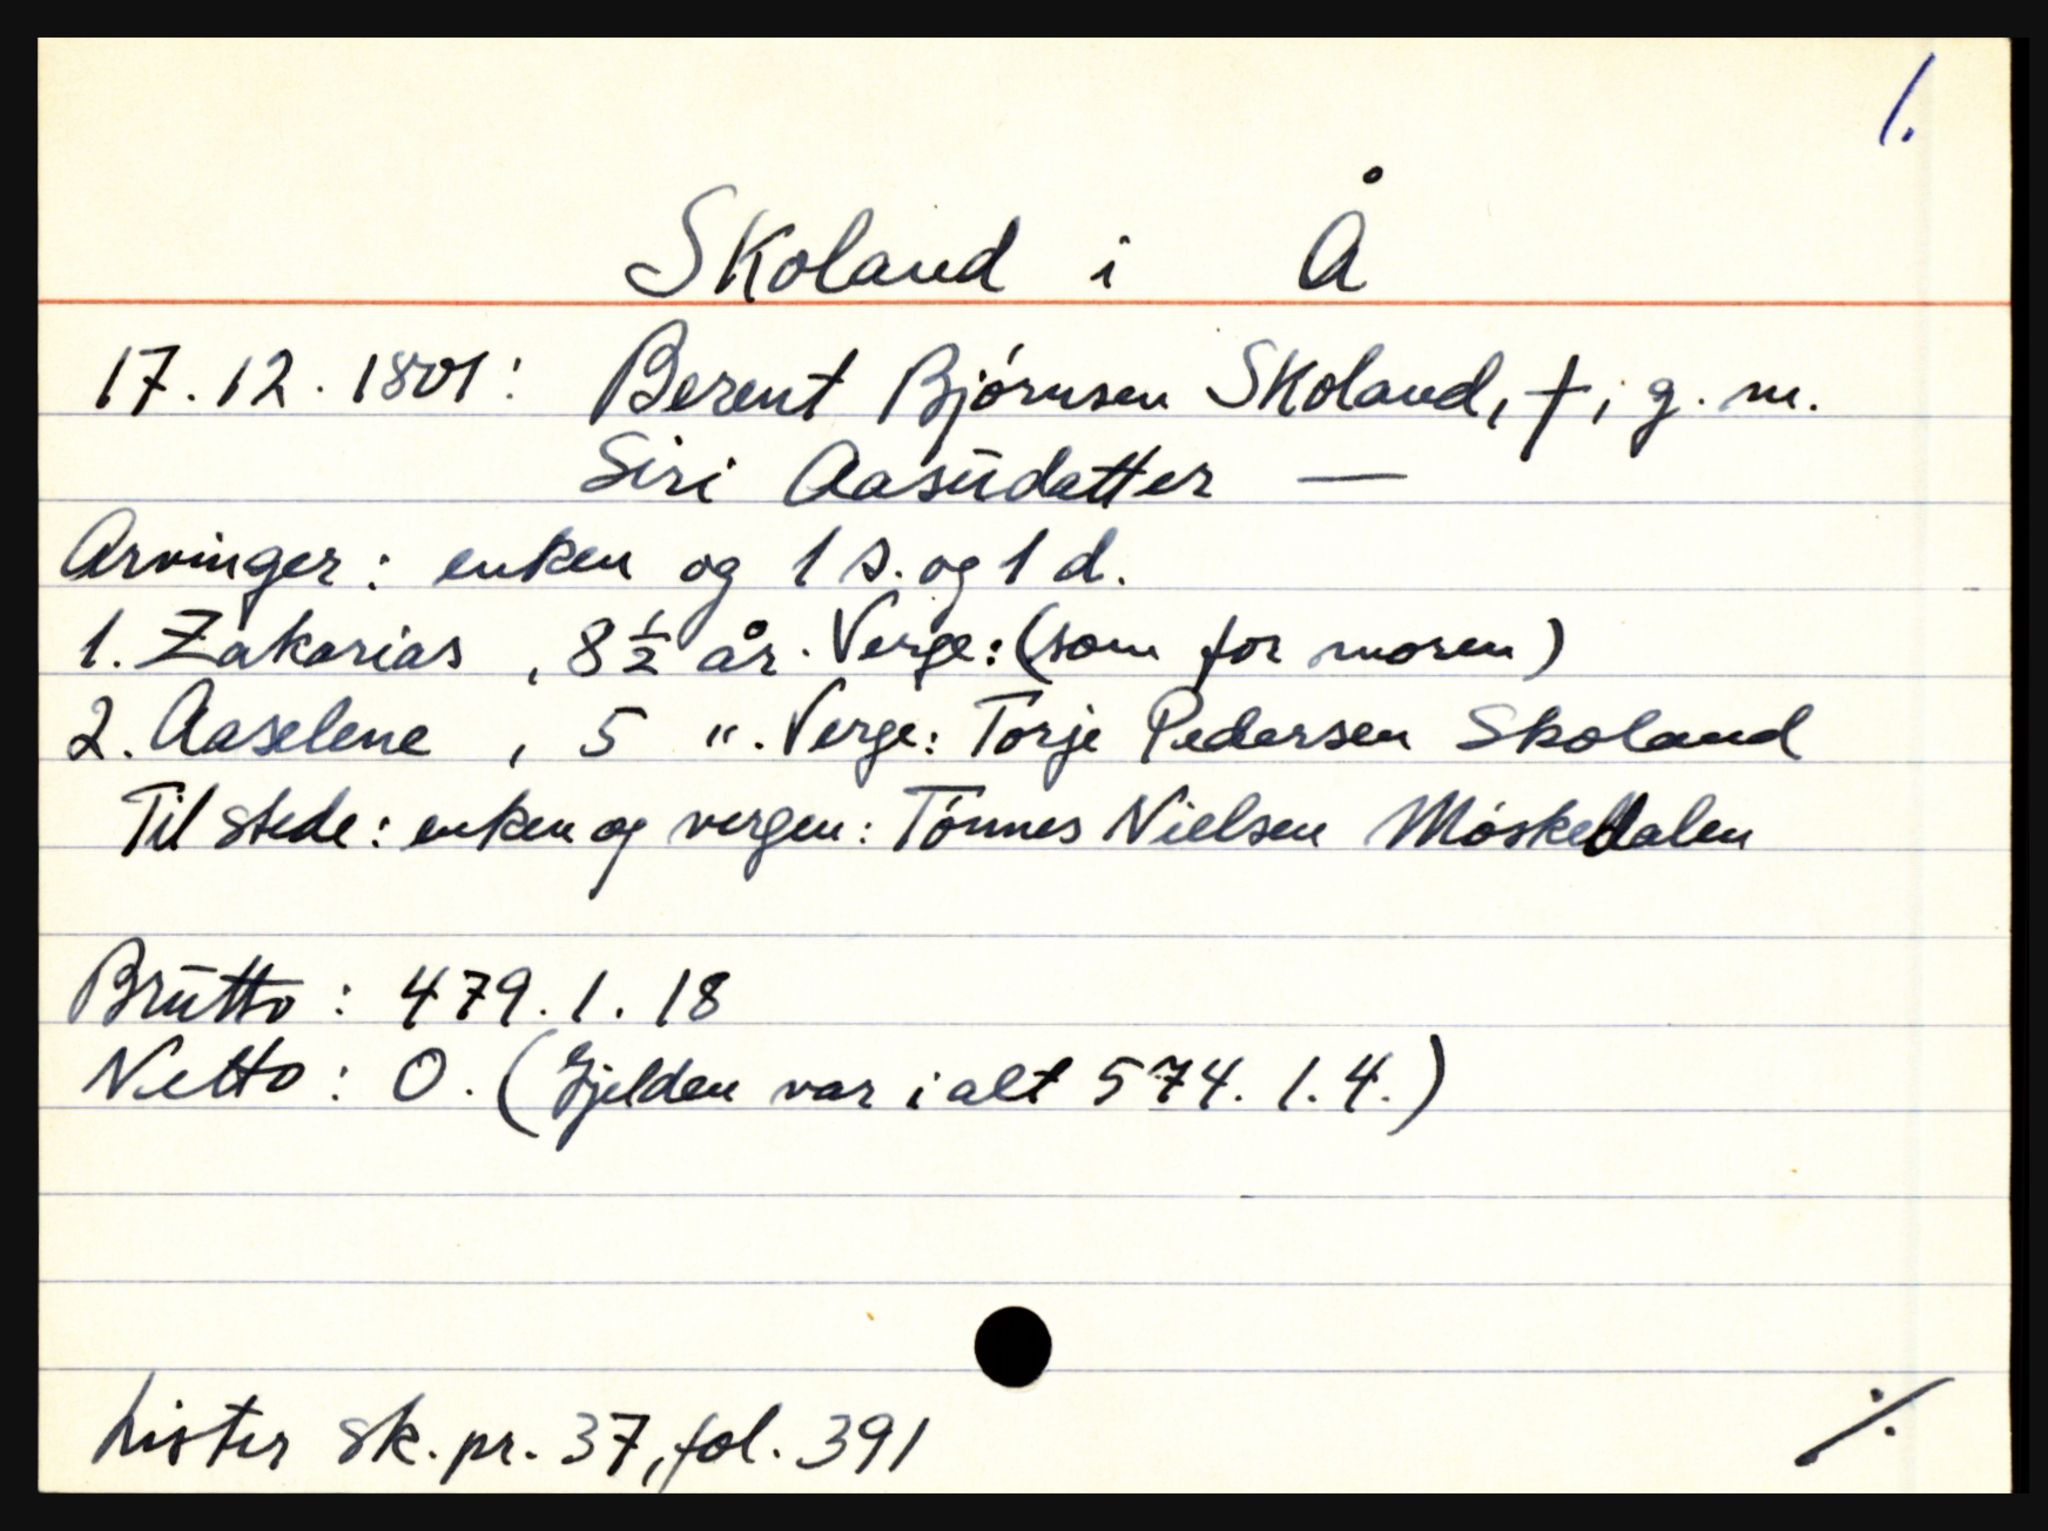 1.
Skoland i Å
17.12.1801: Berent Bjørnsen Skoland, †, g. m.
Siri Aasudatter —
Arvinger: enken og 1 s. og 1 d.
1. Zakarias , 8 ½ år. Verge: (som for moren)
2. Aaselene , 5 ". Verge: Torje Pedersen Skoland
Til stede: enken og vergen: Tønnes Nielsen Møskedalen
Brutto: 479. 1. 18
Netto: 0. (Gjelden var i alt 574. 1. 4.)
Lister sk. pr. 37, fol. 391
⁒